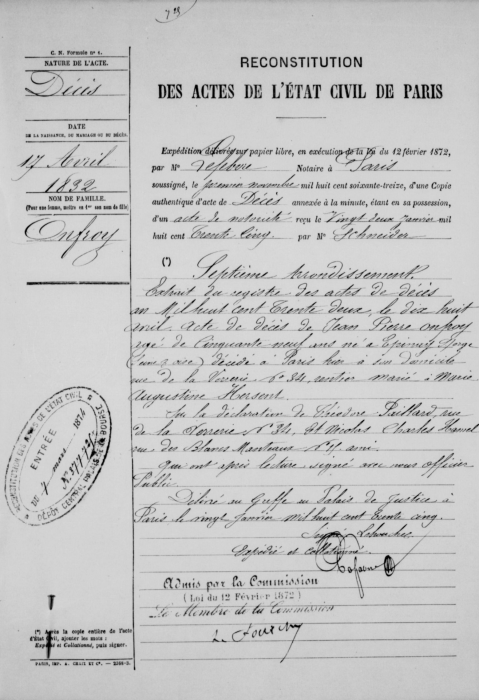 C. N. Formule n° 1.
NATURE DE L'ACTE.
Décès
DATE
DE LA NAISSANCE, DU MARIAGE OU DU DÉCÈS.
17 Avril
1832
NOM DE FAMILLE.
(Pour une femme, mettre en 1re son nom de fille)
Onfroy
RECONSTITUTION
DES ACTES DE L'ÉTAT CIVIL DE PARIS
Expédition délivrée sur papier libre, en exécution de la loi du 12 février 1872,
par Me Lefebvre Notaire à Paris
soussigné, le premier novembre mil huit cent soixante-treize, d'une Copie
authentique d'acte de Décès annexée à la minute, étant en sa possession,
d'un acte de notoriété reçu le Vingt deux janvier mil
huit cent Trente Cinq par Me Schneider
(*)
Septième arrondissement
Extrait du registre des actes de décès
an Mil huit cent Trente deux, le dix huit
avril acte de décès de Jean Pierre onfroy
agé de Cinquante neuf ans né à Epinay Sorge
(Seine & oise) décédé à Paris hier à son domicile
rue de la N° 34 rentier marié à Marie
Augustine Hersent.
Sur la déclaration de Théodore Paillard, rue
de la N° 34. Et Nicolas Charles Hamel
rue des Blancs Manteaux N° ami.
Qui ont après lecture signé avec nous officier
Public
Délivré au Greffe au Palais de Justice à
Paris le vingt janvier mil huit cent trente cinq.
Signé
Expédié et collationné.
Admis par la Commission
(Loi du 12 Février 1872)
Le Membre de la Commission
RECONSTITUTION DES ACTES DE L'ÉTAT CIVIL
ENTRÉE
DU 7 mars 1874
DÉPÔT CENTRAL
(*) Après la copie entière de l'acte
d'état civil, ajouter les mots :
Expédié et Collationné, puis signer.
PARIS, IMP. A. CHAIX ET Cie.